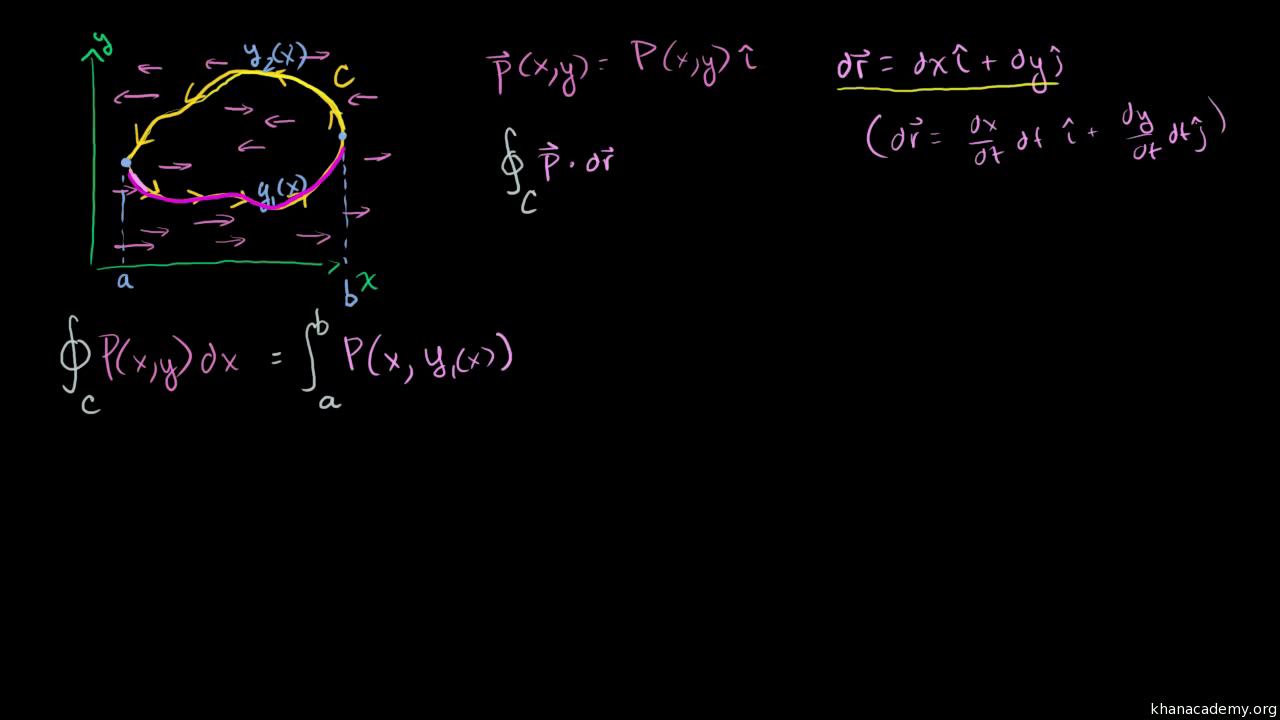 y
y₂(x)
C
y₁(x)
a
b
x
p⃗(x,y) = P(x,y) î
∮_C p⃗ · dr⃗
dr⃗ = dx î + dy ĵ
(dr⃗ = dx/dt dt î + dy/dt dt ĵ)
∮_C P(x,y) dx = ∫_a^b P(x, y₁(x))
khanacademy.org